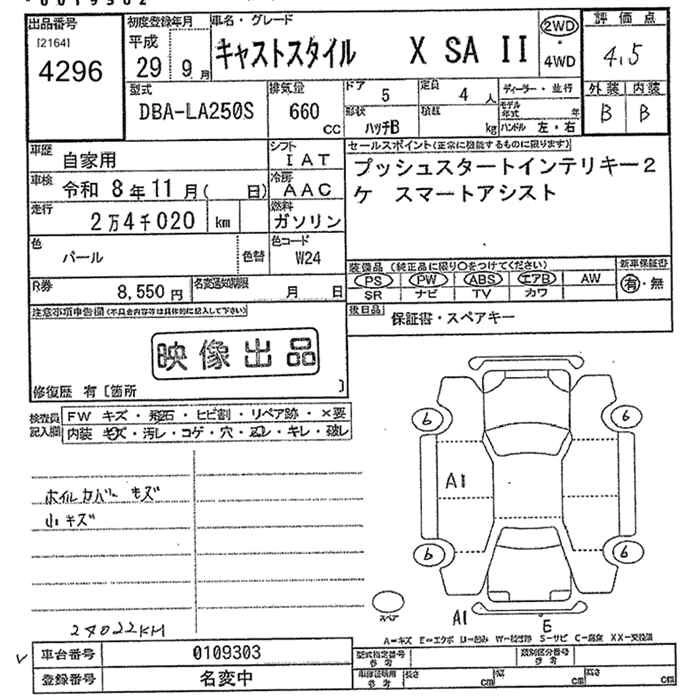 出品番号
[2164]
4296
初度登録年月
平成
29 9月
車名・グレード
キャストスタイル X SA II
2WD
・
4WD
評価点
4.5
外装 内装
B B
型式
DBA-LA250S
排気量
660
CC
ドア
5
定員
4 人
形状
ハッチB
積載
kg
ディーラー・並行
モデル年式 年
ハンドル 左・右
車歴
自家用
シフト
IAT
車検
令和 8年11月( 日)
冷房
AAC
走行
2万4千020 km
燃料
ガソリン
色
パール
色替
色コード
W24
R券
8,550円
名変通知期限
月 日
セールスポイント(正常に機能するものに限ります)
プッシュスタートインテリキー2
ケ スマートアシスト
装備品(純正品に限り○をつけてください)
PS PW ABS エアB AW
SR ナビ TV カワ
新車保証書
有・無
後日品
保証書・スペアキー
注意事項申告欄(不具合内容等は具体的に記入して下さい)
映像出品
修復歴 有[箇所 ]
検査員
記入欄
FW キズ・飛石・ヒビ割・リペア跡・×要
内装 キズ・汚レ・コゲ・穴・凹レ・キレ・破レ
ホイルカバー キズ
小キズ
24022KM
6
6
A1
6
6
スペア
A1
E
A=キズ E=エクボ U=凹み W=補修跡 S=サビ C=腐食 XX=交換済
車台番号
0109303
登録番号
名変中
型式指定番号
参考
類別区分番号
参考
車庫証明用
参考
長さ cm
幅 cm
高さ cm